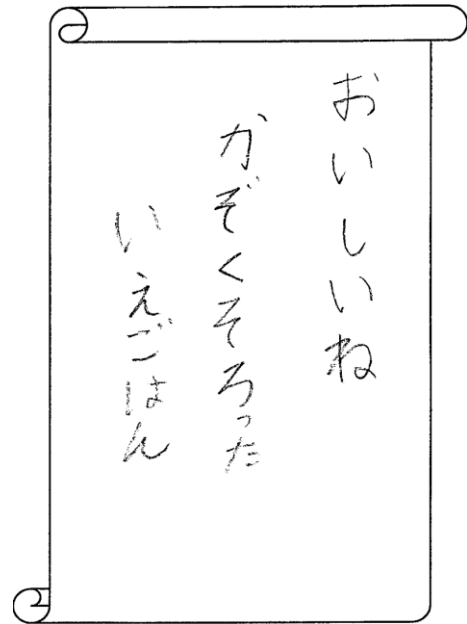 おいしいね
かぞくそろった
いえごはん